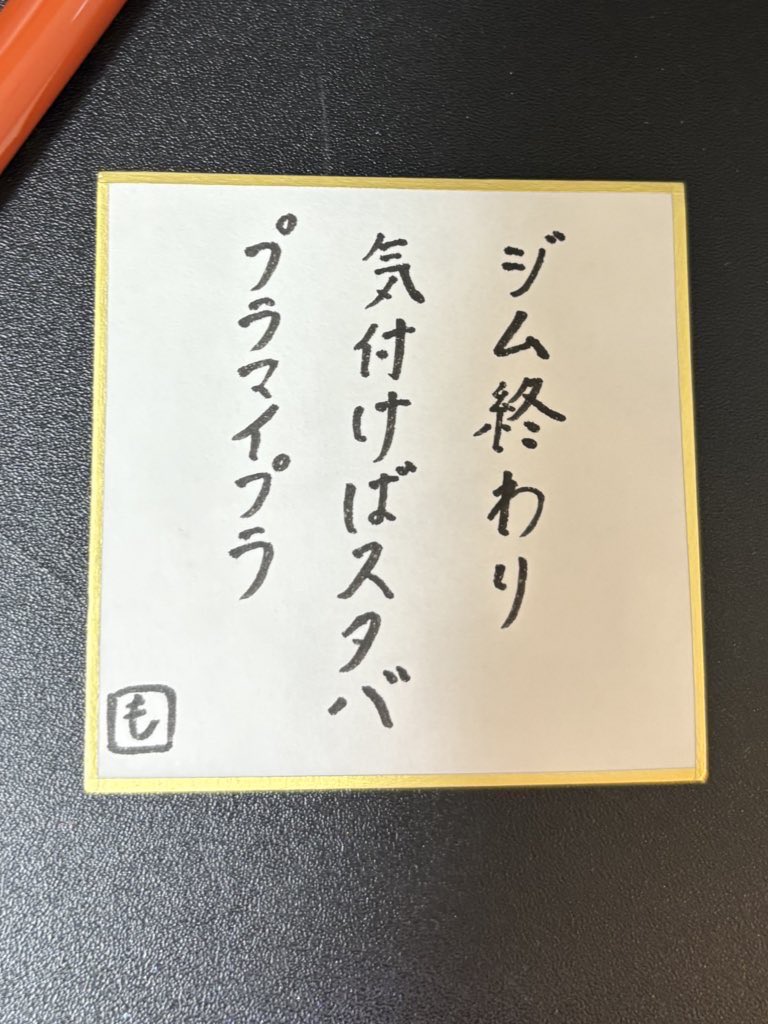 ジム終わり
気付けばスタバ
プラマイプラ
も